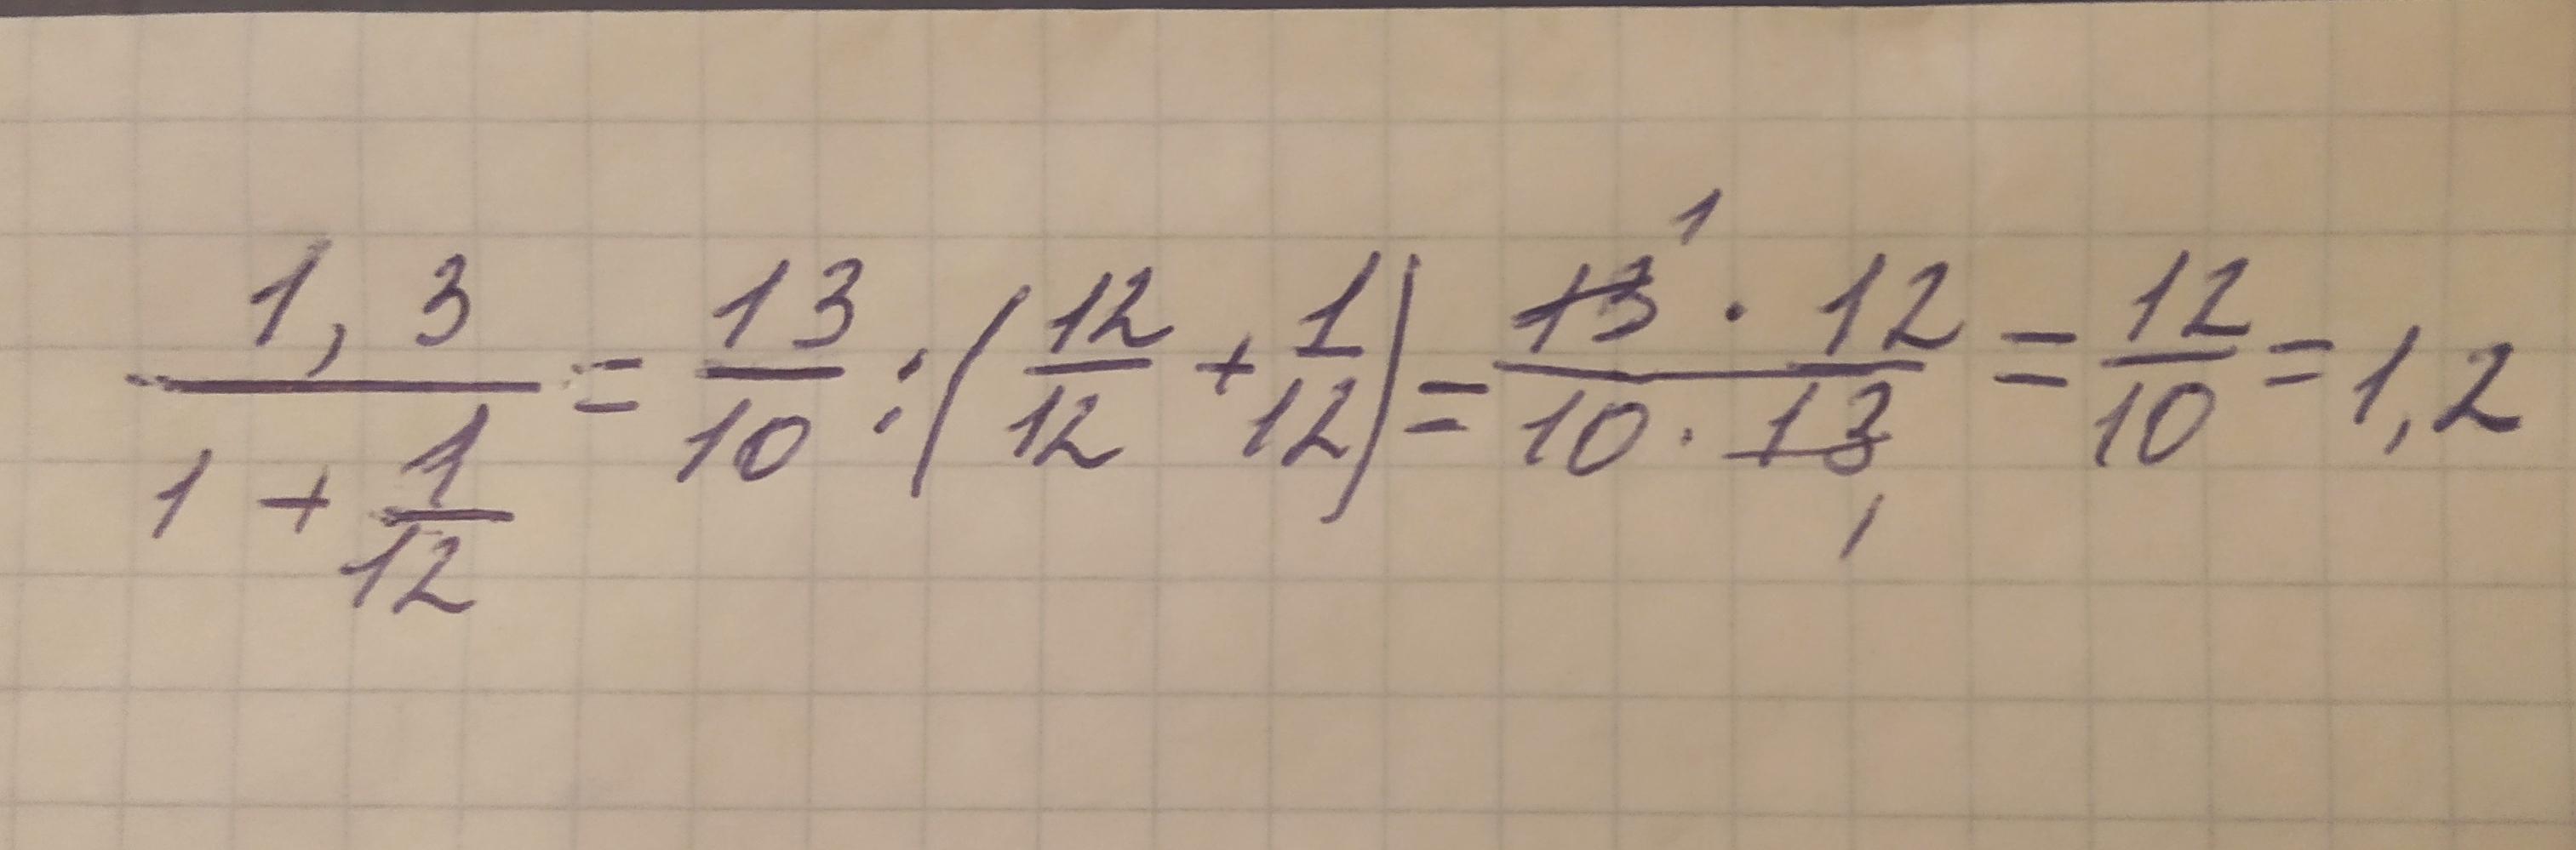 \frac{1,3}{1+\frac{1}{12}} = \frac{13}{10} : \left(\frac{12}{12} + \frac{1}{12}\right) = \frac{\cancel{13}^{1} \cdot 12}{10 \cdot \cancel{13}_{1}} = \frac{12}{10} = 1,2